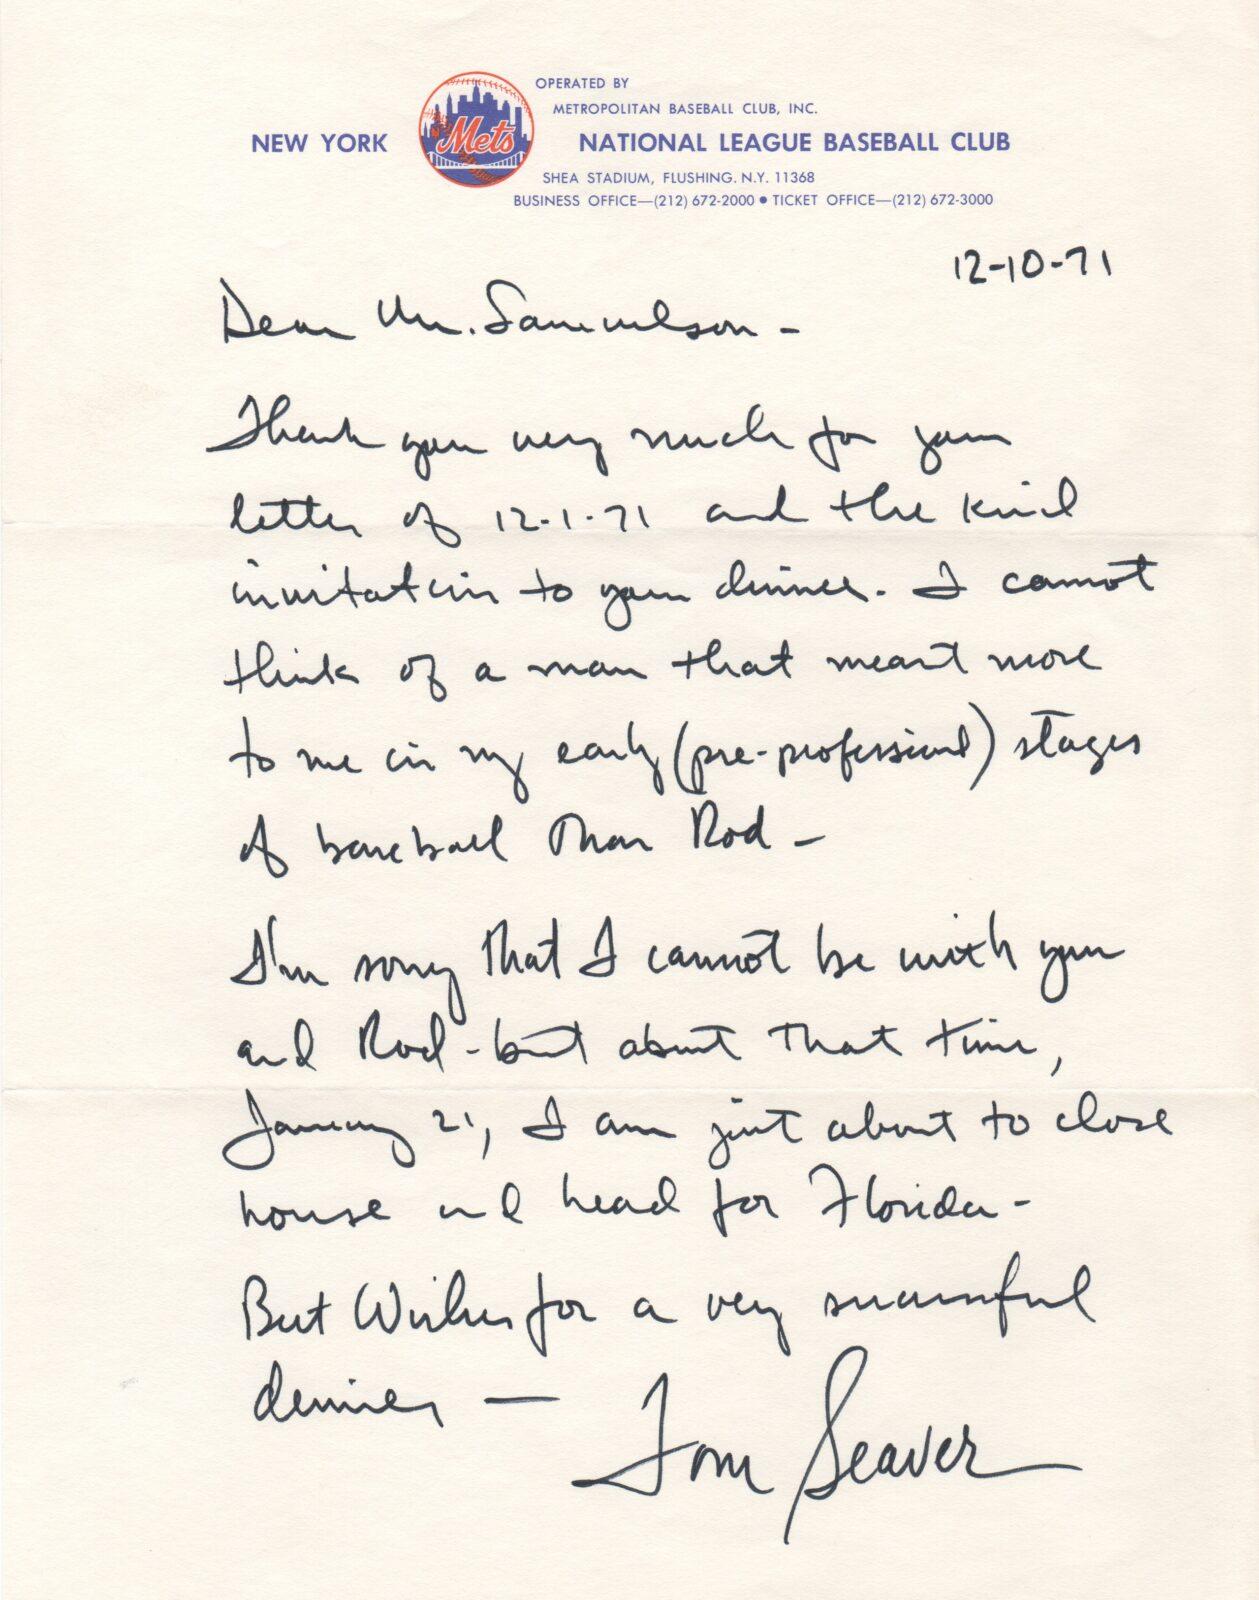 OPERATED BY
METROPOLITAN BASEBALL CLUB, INC.
NEW YORK Mets NATIONAL LEAGUE BASEBALL CLUB
SHEA STADIUM, FLUSHING. N.Y. 11368
BUSINESS OFFICE—(212) 672-2000 • TICKET OFFICE—(212) 672-3000
12-10-71
Dear Mr. Samuelson -
Thank you very much for your
letter of 12-1-71 and the kind
invitation to your dinner. I cannot
think of a man that meant more
to me in my early (pre-professional) stages
of baseball than Rod -
I'm sorry that I cannot be with you
and Rod - but about that time,
January 21, I am just about to close
house and head for Florida -
Best Wishes for a very successful
dinner —
Tom Seaver